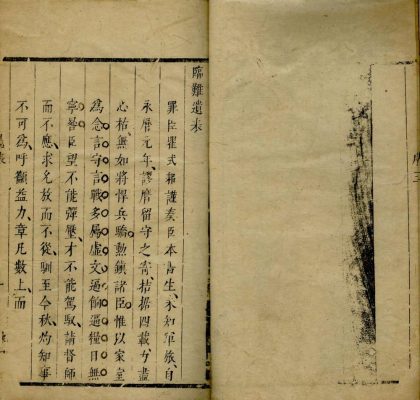 臨難遺表
罪臣瞿式耜謹奏臣本書生、未知軍旅、自
永曆元年、謬膺留守之寄、拮据四載、力盡
心枯、無如將悍兵驕、勳鎮諸臣、惟以家室
為念、言守言戰、多屬虛文、逼餉逼糧、日無
寧晷、臣望不能彈壓、才不能駕馭、請督師
而不應、求允放而不從、馴至今秋、灼知事
不可為、呼籲益力、章凡數上、而